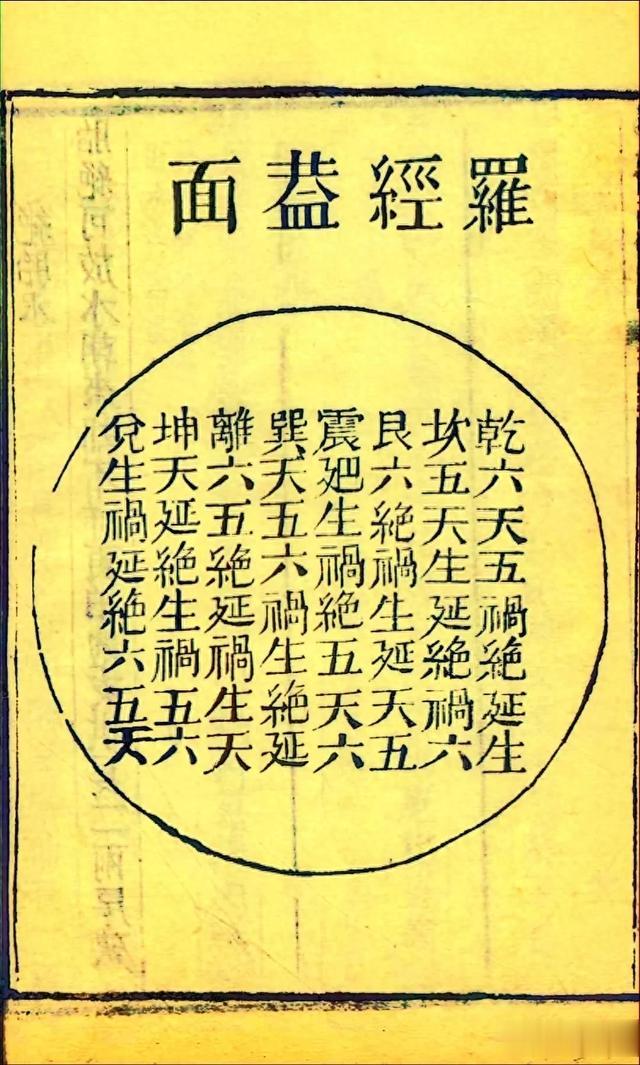 羅經葢面
乾六天五禍絶延生
坎五天生延絶禍六
艮六絶禍生延天五
震延生禍絶五天六
巽天五六禍生絶延
離六五絶延禍生天
坤天延絶生禍五六
兊生禍延絶六五天